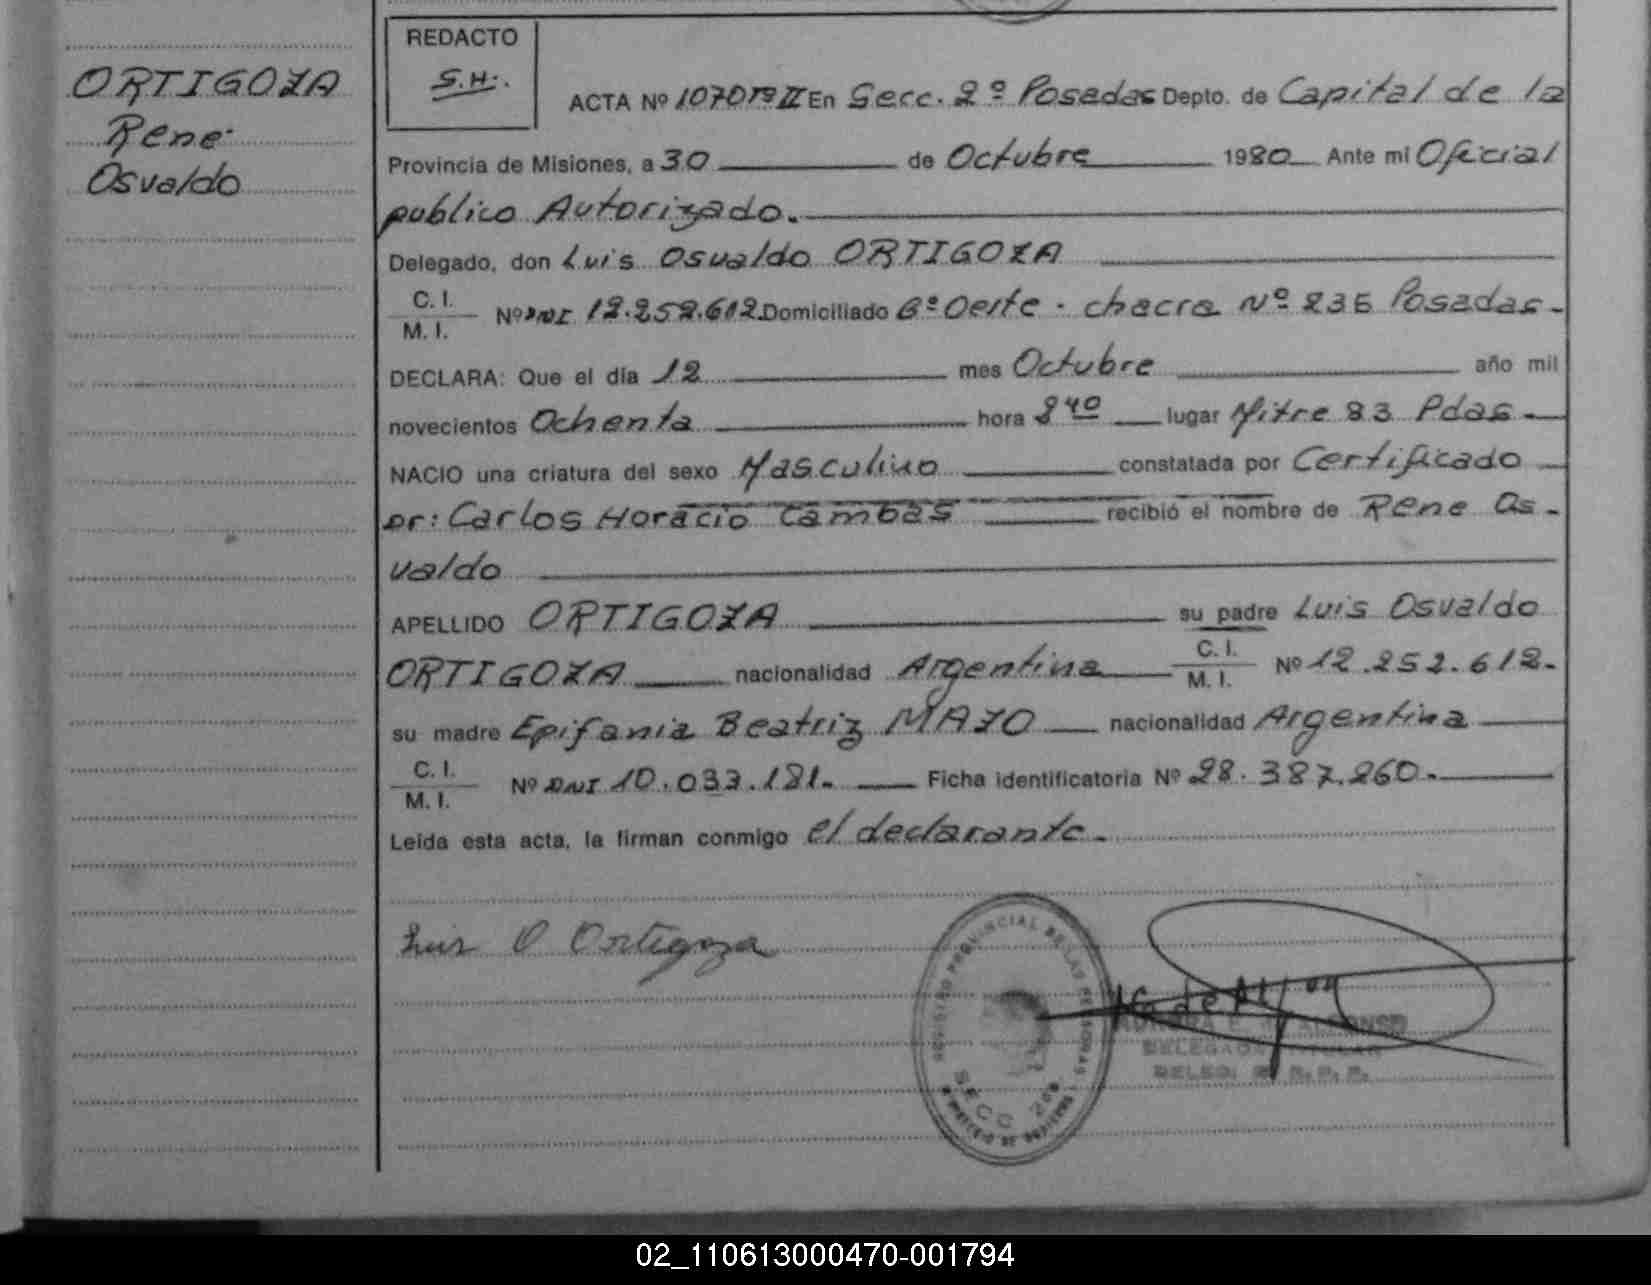 ORTIGOZA
Rene
Osvaldo
REDACTO
S.H.
ACTA Nº 1070 Tº II En Secc. 2º Posadas Depto. de Capital de la
Provincia de Misiones, a 30 de Octubre 1980 Ante mi Oficial
publico Autorizado.
Delegado, don Luis Osvaldo ORTIGOZA
C. I.
M. I.
Nº DNI 12.252.612 Domiciliado 6º Oeste - chacra Nº 236 Posadas-
DECLARA: Que el día 12 mes Octubre año mil
novecientos Ochenta hora 8 40 lugar Mitre 83 Pdas-
NACIO una criatura del sexo Masculino constatada por Certificado
Dr: Carlos Horacio Cambas recibió el nombre de Rene Os-
valdo
APELLIDO ORTIGOZA su padre Luis Osvaldo
ORTIGOZA nacionalidad Argentina C. I. M. I. Nº 12.252.612-
su madre Epifania Beatriz MAZO nacionalidad Argentina
C. I.
M. I.
Nº DNI 10.033.181- Ficha identificatoria Nº 28.387.260.
Leída esta acta, la firman conmigo el declarante.
Luis O Ortigoza
REGISTRO PROVINCIAL DE LAS PERSONAS
SECC 2da
MINISTERIO DE GOBIERNO
DELEGADA TITULAR
02_110613000470-001794